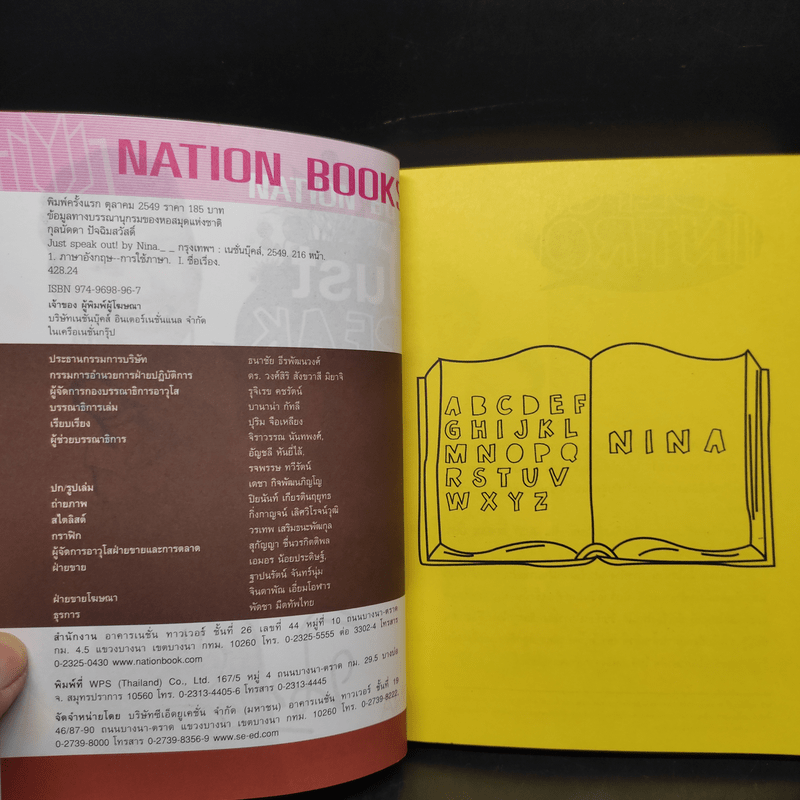 NATION BOOKS
พิมพ์ครั้งแรก ตุลาคม 2549 ราคา 185 บาท
ข้อมูลทางบรรณานุกรมของหอสมุดแห่งชาติ
กุลนัดดา ปัจฉิมสวัสดิ์
Just speak out! by Nina._ _ กรุงเทพฯ : เนชั่นบุ๊คส์, 2549. 216 หน้า.
1. ภาษาอังกฤษ--การใช้ภาษา. I. ชื่อเรื่อง.
428.24
ISBN 974-9698-96-7
เจ้าของ ผู้พิมพ์ผู้โฆษณา
บริษัทเนชั่นบุ๊คส์ อินเตอร์เนชั่นแนล จำกัด
ในเครือเนชั่นกรุ๊ป
ประธานกรรมการบริษัท ธนาชัย ธีรพัฒนวงศ์
กรรมการอำนวยการฝ่ายปฏิบัติการ ดร. วงศ์สิริ สังขวาสี มิยาจิ
ผู้จัดการกองบรรณาธิการอาวุโส รุจิเรข คชรัตน์
บรรณาธิการเล่ม บานาน่า กัทลี
เรียบเรียง ปุริม จือเหลียง
ผู้ช่วยบรรณาธิการ จิราวรรณ นันทพงศ์,
อัญชลี หันยี่ไล้,
รจพรรษ ทวีรัตน์
ปก/รูปเล่ม เดชา กิจพัฒนภิญโญ
ถ่ายภาพ ปิยนันท์ เกียรตินฤยุทธ
สไตลิสต์ กิ่งกาญจน์ เลิศวิโรจน์วุฒิ
กราฟิก วรเทพ เสริมธนะพัฒกุล
ผู้จัดการอาวุโสฝ่ายขายและการตลาด สุกัญญา ชื่นวรกิตติพล
ฝ่ายขาย เอมอร น้อยประดิษฐ์,
ฐาปนรัตน์ จันทร์นุ่ม
ฝ่ายขายโฆษณา จินตาพัณ เอี่ยมโอฬาร
ธุรการ พัดชา มีดทัพไทย
สำนักงาน อาคารเนชั่น ทาวเวอร์ ชั้นที่ 26 เลขที่ 44 หมู่ที่ 10 ถนนบางนา-ตราด
กม. 4.5 แขวงบางนา เขตบางนา กทม. 10260 โทร. 0-2325-5555 ต่อ 3302-4 โทรสาร
0-2325-0430 www.nationbook.com
พิมพ์ที่ WPS (Thailand) Co., Ltd. 167/5 หมู่ 4 ถนนบางนา-ตราด กม. 29.5 บางบ่อ
จ. สมุทรปราการ 10560 โทร. 0-2313-4405-6 โทรสาร 0-2313-4445
จัดจำหน่ายโดย บริษัทซีเอ็ดยูเคชั่น จำกัด (มหาชน) อาคารเนชั่น ทาวเวอร์ ชั้นที่ 19
46/87-90 ถนนบางนา-ตราด แขวงบางนา เขตบางนา กทม. 10260 โทร. 0-2739-8222,
0-2739-8000 โทรสาร 0-2739-8356-9 www.se-ed.com
A B C D E F
G H I J K L
M N O P Q
R S T U V
W X Y Z
NINA